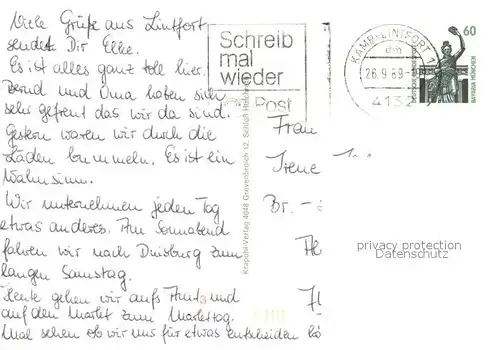 Viele Grüße aus Lintfort
sendet Dir Elke.
Es ist alles ganz toll hier.
Bernd und Oma haben sich
sehr gefreut das wir da sind.
Gestern waren wir durch die
Läden bummeln. Es ist ein
Wahnsinn.
Wir unternehmen jeden Tag
etwas anderes. Am Sonnabend
fahren wir nach Duisburg zum
langen Samstag.
Heute gehen wir aufs Amt und
auf den Markt zum Markttag.
Mal sehen ob wir uns für etwas entscheiden kö
Schreib
mal
wieder
Post
KAMP-LINTFORT 1
26.9.89
4132
60
Krapohl-Verlag 4048 Grevenbroich 12, Schloß
Frau
Irene
Br. -
privacy protection
Datenschutz